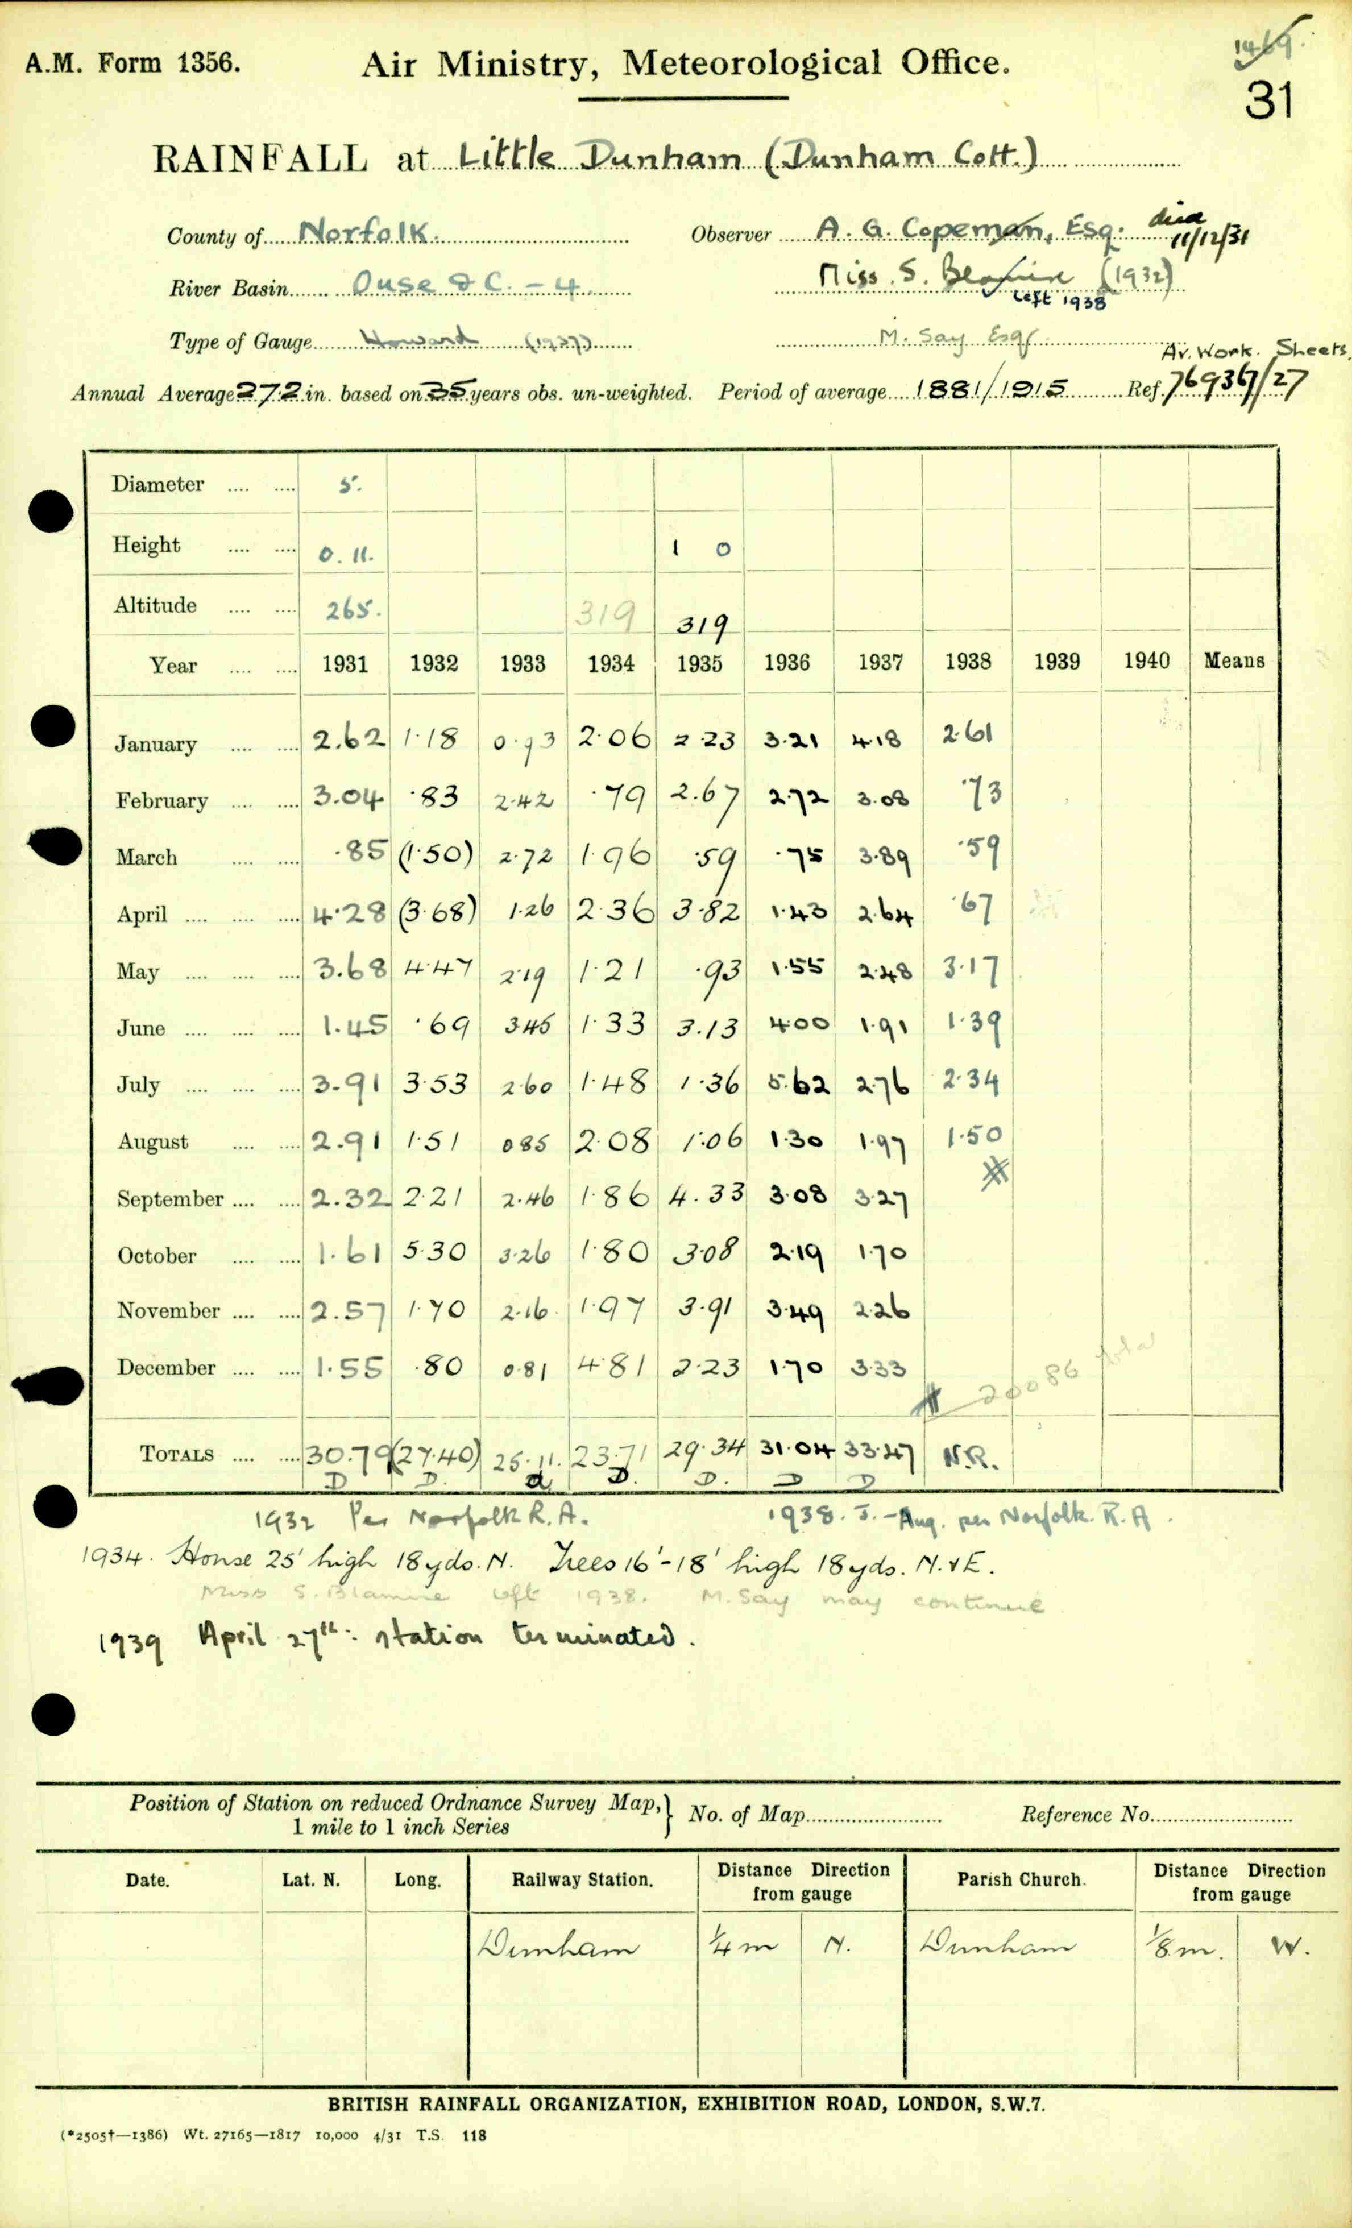 A.M. Form 1356.
Air Ministry, Meteorological Office.
1469.
31
RAINFALL at Little Dunham (Dunham Cott.)
County of Norfolk. Observer A. G. Copeman, Esq. died 11/12/31
River Basin Ouse &C. - 4. Miss. S. (1932)
left 1938
Type of Gauge Howard (1937) M. Say Esqr.
Av. Work. Sheets.
Annual Average 27.2 in. based on 35 years obs. un-weighted. Period of average 1881/1915 Ref. 76936/27
Diameter .... .... 5.
Height .... .... 0. 11. 1 0
Altitude .... .... 265. 319 319
Year .... .... 1931 1932 1933 1934 1935 1936 1937 1938 1939 1940 Means
January .... .... 2.62 1.18 0.93 2.06 2.23 3.21 4.18 2.61
February .... .... 3.04 .83 2.42 .79 2.67 2.72 3.08 .73
March .... .... .85 (1.50) 2.72 1.96 .59 .75 3.89 .59
April .... .... .... 4.28 (3.68) 1.26 2.36 3.82 1.43 2.64 .67
May .... .... .... 3.68 4.47 2.19 1.21 .93 1.55 2.48 3.17
June .... .... .... 1.45 .69 3.45 1.33 3.13 4.00 1.91 1.39
July .... .... .... 3.91 3.53 2.60 1.48 1.36 5.62 2.76 2.34
August .... .... 2.91 1.51 0.85 2.08 1.06 1.30 1.97 1.50
September .... .... 2.32 2.21 2.46 1.86 4.33 3.08 3.27
October .... .... 1.61 5.30 3.26 1.80 3.08 2.19 1.70
November .... .... 2.57 1.70 2.16 1.97 3.91 3.49 2.26
December .... .... 1.55 .80 0.81 4.81 2.23 1.70 3.33
20086
TOTALS .... .... 30.79 (27.40) 25.11. 23.71 29.34 31.04 33.47 N.R.
D D. d D. D. D D
1932 Per Norfolk R.A. 1938. J.-Aug. per Norfolk. R.A.
1934. House 25' high 18yds. N. Trees 16'-18' high 18yds. N.&E.
Miss S. Blamire left 1938. M. Say may continue
1939 April 27th: station terminated.
Position of Station on reduced Ordnance Survey Map, 1 mile to 1 inch Series } No. of Map Reference No.
Date. Lat. N. Long. Railway Station. Distance Direction from gauge Parish Church. Distance Direction from gauge
Dunham 1/4 m N. Dunham 1/8 m. W.
BRITISH RAINFALL ORGANIZATION, EXHIBITION ROAD, LONDON, S.W.7.
(*2505†—1386) Wt. 27165—1817 10,000 4/31 T.S. 118